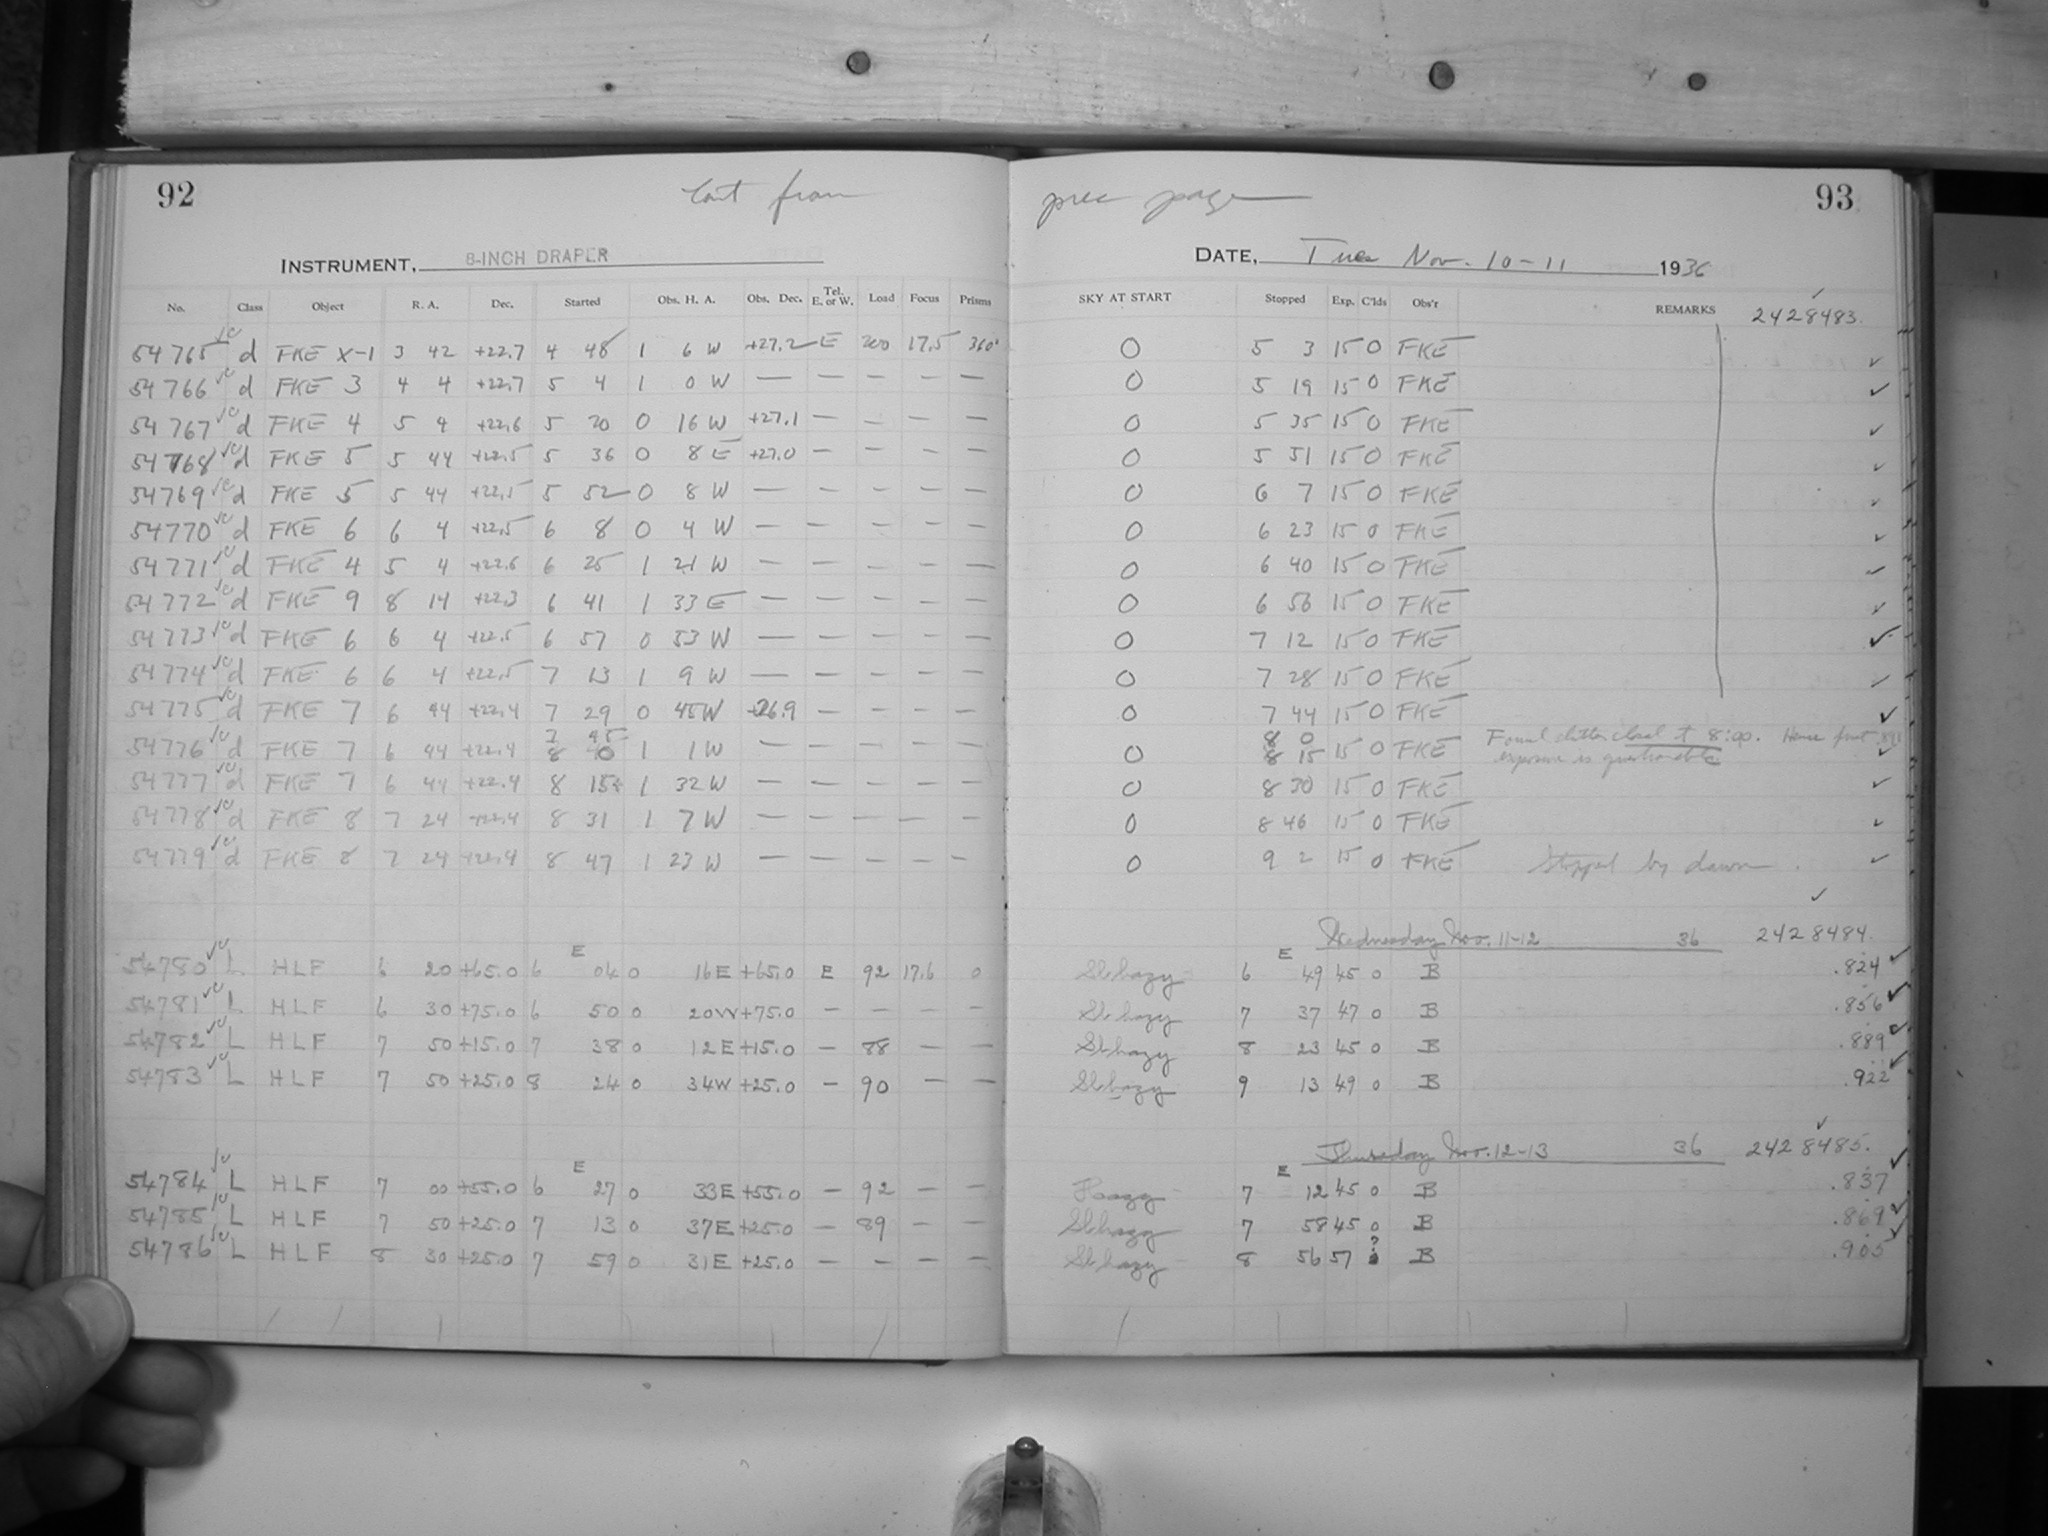 92
Cont from
prec page
93
INSTRUMENT, 8-INCH DRAPER
DATE, Tues Nov. 10-11 1936
No. Class Object R. A. Dec. Started Obs. H. A. Obs. Dec. Tel. E. or W. Load Focus Prisms SKY AT START Stopped Exp. C'lds Obs'r REMARKS 2428483.
54765 d FKE X-1 3 42 +22.7 4 48 1 6 W +27.2 E 200 17.5 360' 0 5 3 15 0 FKE
54766 d FKE 3 4 4 +22.7 5 4 1 0 W — — — — — 0 5 19 15 0 FKE
54767 d FKE 4 5 4 +22.6 5 20 0 16 W +27.1 — — — — 0 5 35 15 0 FKE
54768 d FKE 5 5 44 +22.5 5 36 0 8 E +27.0 — — — — 0 5 51 15 0 FKE
54769 d FKE 5 5 44 +22.5 5 52 0 8 W — — — — — 0 6 7 15 0 FKE
54770 d FKE 6 6 4 +22.5 6 8 0 4 W — — — — — 0 6 23 15 0 FKE
54771 d FKE 4 5 4 +22.6 6 25 1 21 W — — — — — 0 6 40 15 0 FKE
54772 d FKE 9 8 14 +22.3 6 41 1 33 E — — — — — 0 6 56 15 0 FKE
54773 d FKE 6 6 4 +22.5 6 57 0 53 W — — — — — 0 7 12 15 0 FKE
54774 d FKE 6 6 4 +22.5 7 13 1 9 W — — — — — 0 7 28 15 0 FKE
54775 d FKE 7 6 44 +22.4 7 29 0 45 W +26.9 — — — — 0 7 44 15 0 FKE
7 45 8 0 Found shutter closed at 8:00. Hence first
54776 d FKE 7 6 44 +22.4 8 0 1 1 W — — — — — 0 8 15 15 0 FKE exposure is questionable
54777 d FKE 7 6 44 +22.4 8 15+ 1 32 W — — — — — 0 8 30 15 0 FKE
54778 d FKE 8 7 24 +22.4 8 31 1 7 W — — — — — 0 8 46 15 0 FKE
54779 d FKE 8 7 24 +22.4 8 47 1 23 W — — — — — 0 9 2 15 0 FKE Stopped by dawn.
Wednesday Nov. 11-12 36 2428484.
E E
54780 L HLF 6 20 +65.0 6 04 0 16E +65.0 E 92 17.6 0 Sl. hazy 6 49 45 0 B .824
54781 L HLF 6 30 +75.0 6 50 0 20W +75.0 — — — — Sl. hazy 7 37 47 0 B .856
54782 L HLF 7 50 +15.0 7 38 0 12E +15.0 — 88 — — Sl. hazy 8 23 45 0 B .889
54783 L HLF 7 50 +25.0 8 24 0 34W +25.0 — 90 — — Sl. hazy 9 13 49 0 B .922
Thursday Nov. 12-13 36 2428485.
E E
54784 L HLF 7 00 +55.0 6 27 0 33E +55.0 — 92 — — Hazy 7 12 45 0 B .837
54785 L HLF 7 50 +25.0 7 13 0 37E +25.0 — 89 — — Sl. hazy 7 58 45 0 B .869
54786 L HLF 8 30 +25.0 7 59 0 31E +25.0 — — — — Sl. hazy 8 56 57 ? B .905